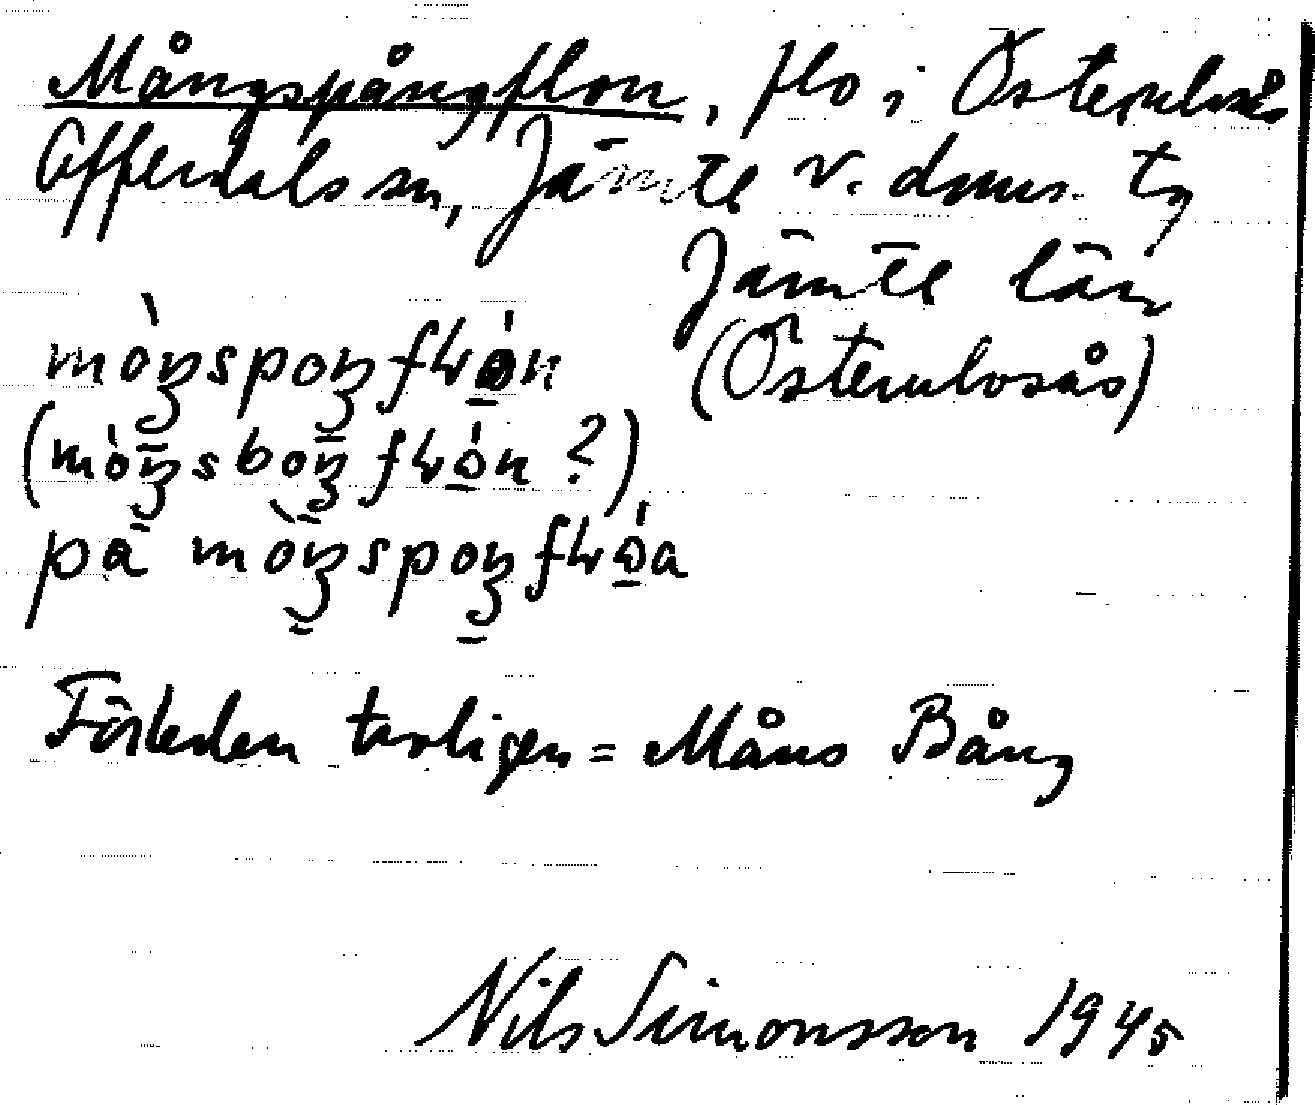 Mångspångflon, flo i Österulvsås
Offerdals sn, Jämtl v. doms. tg
Jämtl län
mòŋspoŋfɫɷ́n (Österulvsås)
(mòŋsboŋfɫɷ́n ?)
på mòŋspoŋfɫɷ́a
Förleden troligen = Måns Bång
Nils Simonsson 1945